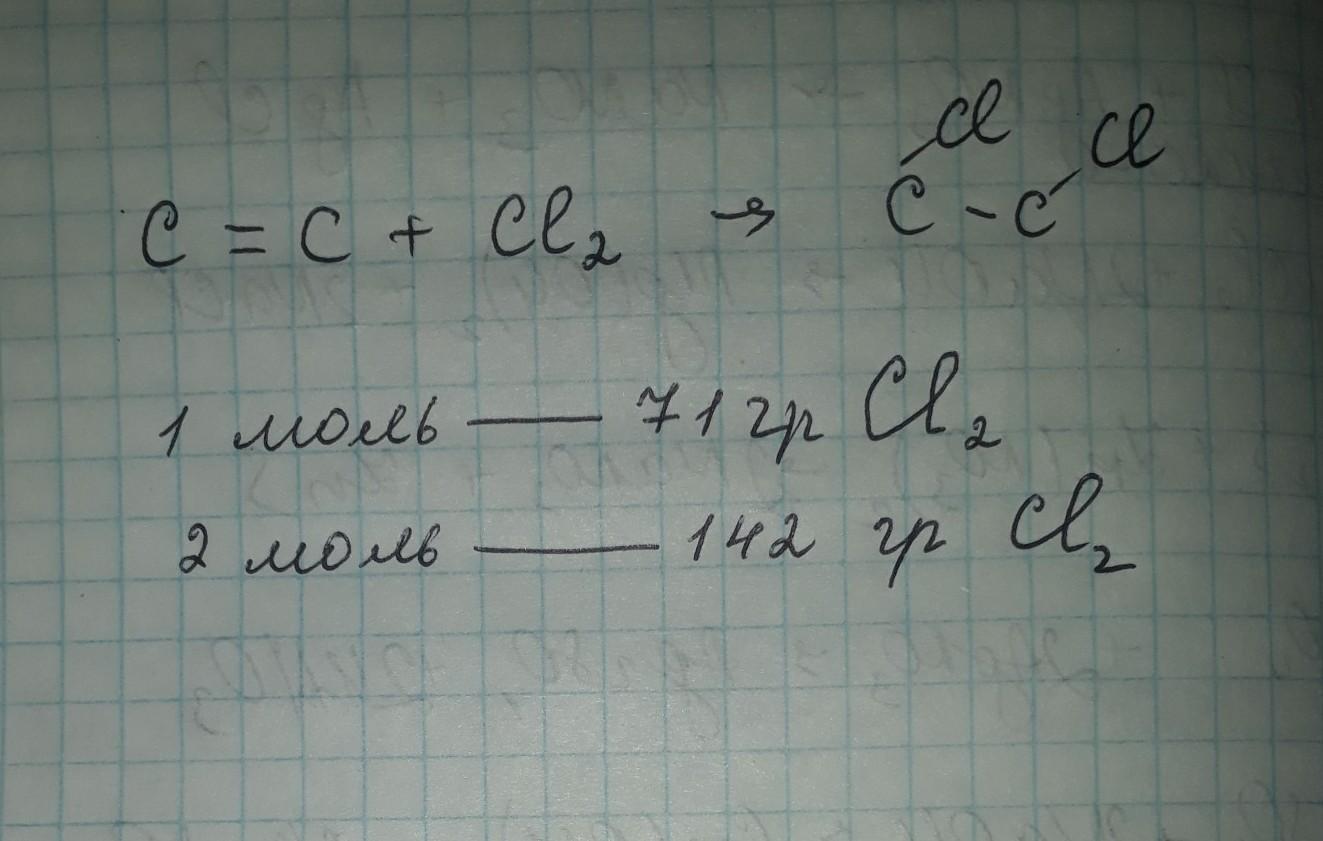 Cl Cl
C = C + Cl₂ → C - C
1 моль — 71 гр Cl₂
2 моль — 142 гр Cl₂